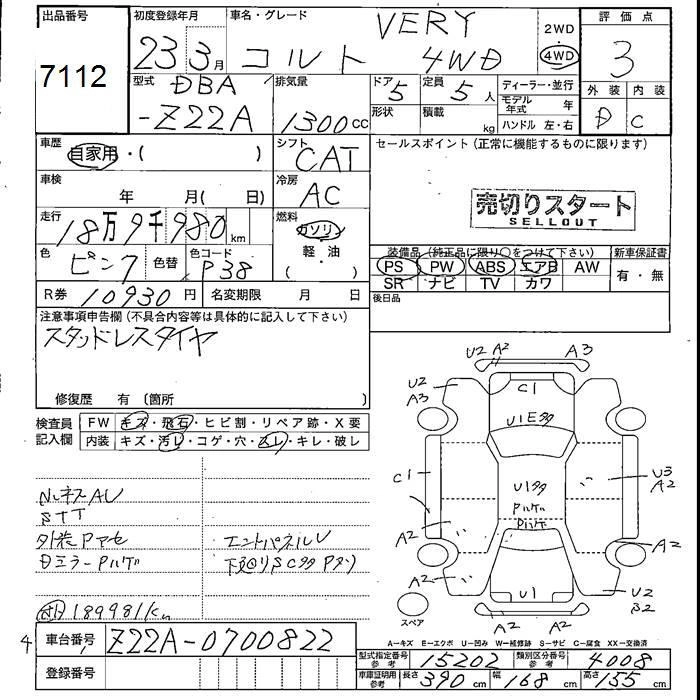 出品番号
7112
初度登録年月
23 3月
車名・グレード
VERY
コルト 4WD
2WD
4WD
評価点
3
外装 内装
D C
型式
DBA
-Z22A
排気量
1300cc
ドア 5
定員 5人
形状
積載 kg
ディーラー・並行
モデル年式 年
ハンドル 左・右
車歴
自家用・( )
シフト
CAT
セールスポイント(正常に機能するものに限ります)
車検
年 月( 日)
冷房
AC
売切りスタート
SELLOUT
走行
18万9千980km
燃料
ガソリン
軽・油
( )
色
ピンク
色替
色コード
P38
装備品(純正品に限り〇をつけて下さい)
PS PW ABS エアB AW
SR ナビ TV カワ
新車保証書
有・無
R券 10930円
名変期限 月 日
後日品
注意事項申告欄(不具合内容等は具体的に記入して下さい)
スタッドレスタイヤ
修復歴 有〔箇所 〕
検査員
記入欄
FW キズ・飛石・ヒビ割・リペア跡・X要
内装 キズ・汚レ・コゲ・穴・スレ・キレ・破レ
STT
下廻りSC多
189981km
U2 A2 A3
U2
A3
C1
U1E多
C1
U1多
U3
A2
A2
A2
A2
U1
U2
B2
A2 A2
スペア
A-キズ E-エクボ U-凹み W-補修跡 S-サビ C-腐食 XX-交換済
4
車台番号 Z22A-0700822
登録番号
型式指定番号 参考 15202
類別区分番号 参考 4008
車庫証明用 参考 長さ 390cm 幅 168cm 高さ 155cm